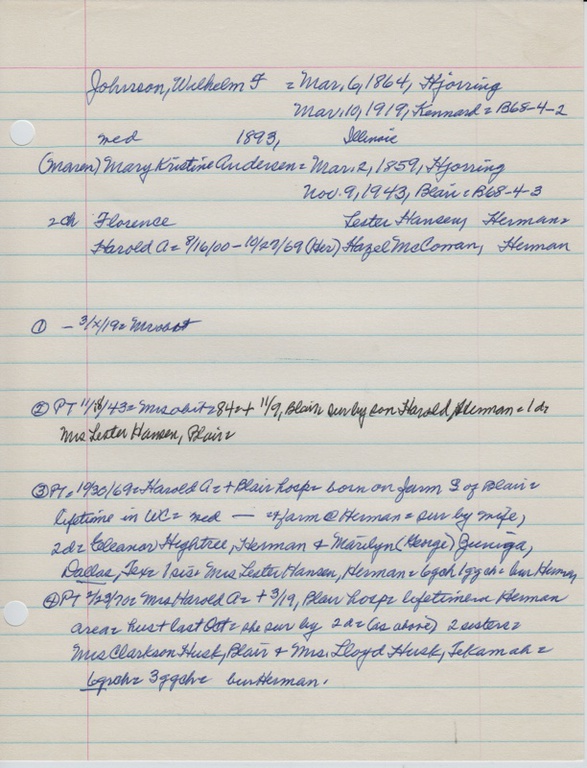 Johnson, Wilhelm F = Mar. 6, 1864, Hjorring
Mar. 10, 1919, Kennard = B68-4-2
med 1893, Illinois
(Maren) Mary Kristine Andersen = Mar. 2, 1859, Hjorring
Nov. 9, 1943, Blair = B68-4-3
2ch Florence Lester Hansen, Herman=
Harold A = 8/16/00 - 10/27/69 (Her) Hazel McCowan, Herman
① - 3/x/19 = Mrs obit
② PT 11/18/43 = Mrs obit = 84 = + 11/9, Blair = sur by son Harold, Herman = 1 d=
Mrs Lester Hansen, Blair=
③ PT = 10/30/69 = Harold A = + Blair hosp = born on farm S of Blair =
lifetime in WC = med — = farm @ Herman = sur by wife,
2d = Eleanor Hightree, Herman & Marilyn (George) Zuniga,
Dallas, Tex = 1 sis = Mrs Lester Hansen, Herman = 6gch 1ggch = bur Herman
④ PT 3/23/70 = Mrs Harold A = + 3/19, Blair hosp = lifetime = Herman
area = hus + last Oct = she sur by 2d = (as above) 2 sisters =
Mrs Clarkson Husk, Blair & Mrs. Lloyd Husk, Tekamah =
6gch = 3ggch = bur Herman.